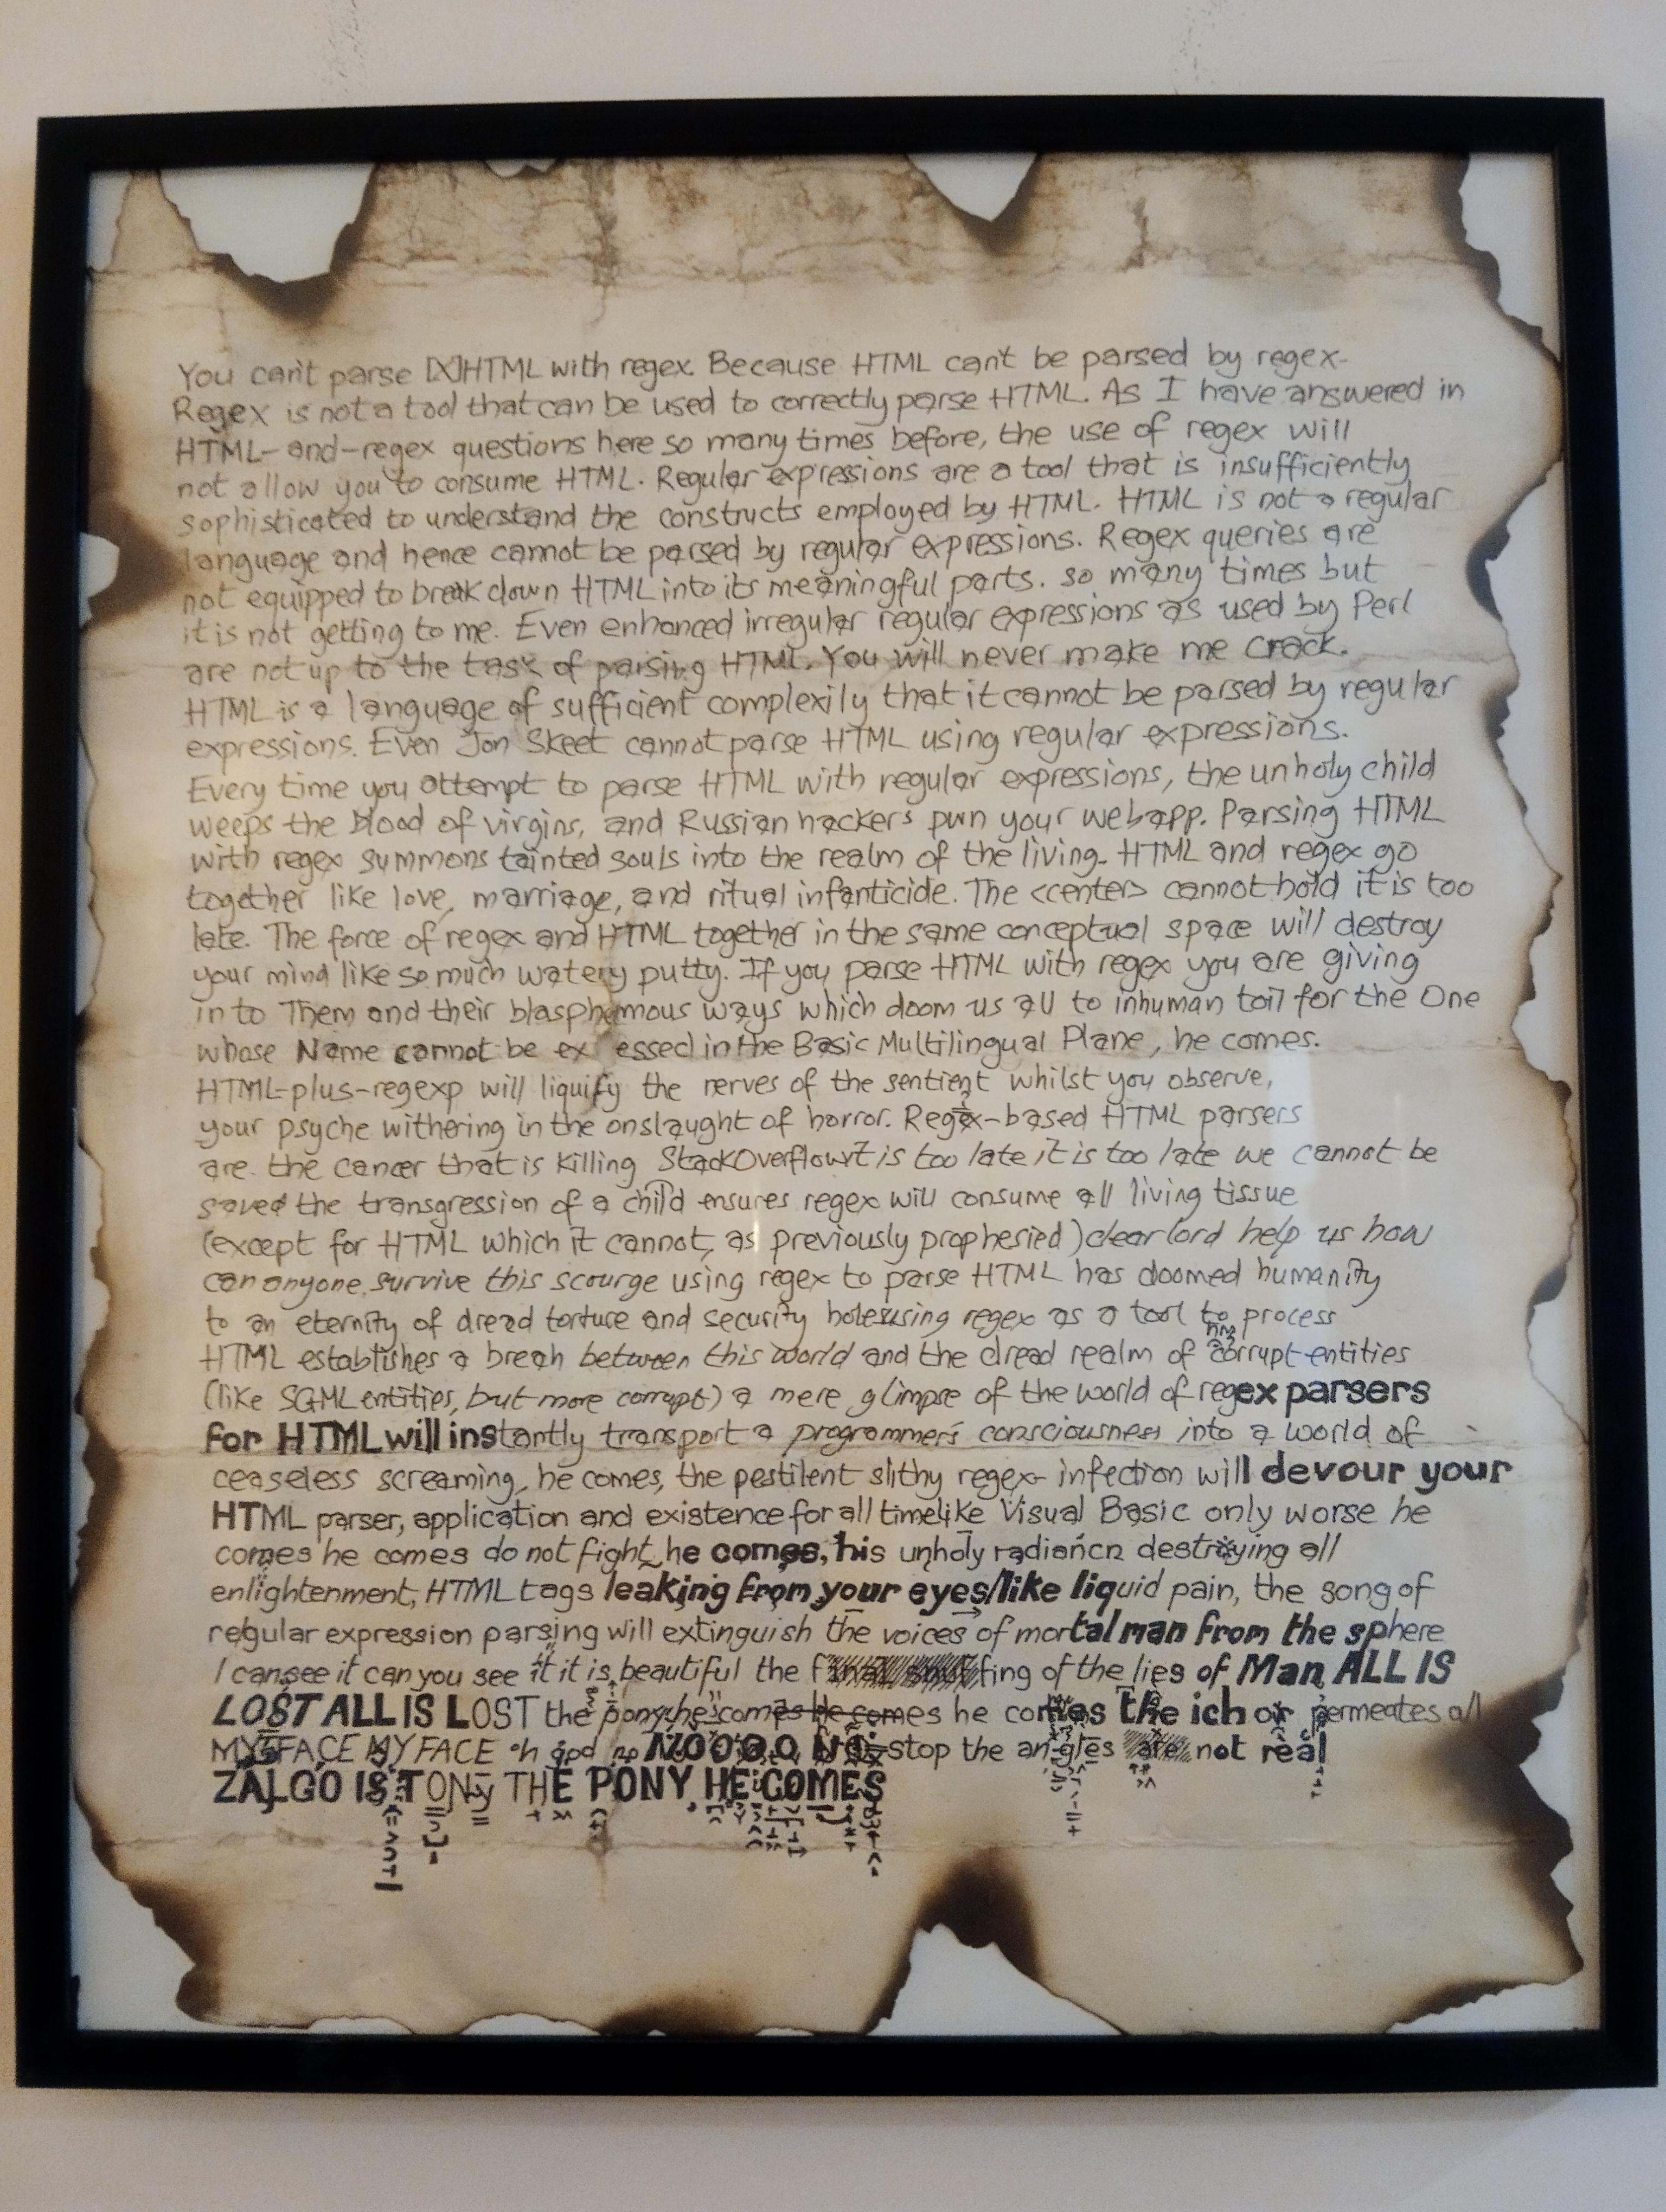 You can't parse [X]HTML with regex. Because HTML can't be parsed by regex.
Regex is not a tool that can be used to correctly parse HTML. As I have answered in
HTML-and-regex questions here so many times before, the use of regex will
not allow you to consume HTML. Regular expressions are a tool that is insufficiently
sophisticated to understand the constructs employed by HTML. HTML is not a regular
language and hence cannot be parsed by regular expressions. Regex queries are
not equipped to break down HTML into its meaningful parts. so many times but
it is not getting to me. Even enhanced irregular regular expressions as used by Perl
are not up to the task of parsing HTML. You will never make me crack.
HTML is a language of sufficient complexily that it cannot be parsed by regular
expressions. Even Jon Skeet cannot parse HTML using regular expressions.
Every time you attempt to parse HTML with regular expressions, the unholy child
weeps the blood of virgins, and Russian hackers pwn your webapp. Parsing HTML
with regex summons tainted souls into the realm of the living. HTML and regex go
together like love, marriage, and ritual infanticide. The <center> cannot hold it is too
late. The force of regex and HTML together in the same conceptual space will destroy
your mind like so much watery putty. If you parse HTML with regex you are giving
in to Them and their blasphemous ways which doom us all to inhuman toil for the One
whose Name cannot be ex essed in the Basic Multilingual Plane, he comes.
HTML-plus-regexp will liquify the nerves of the sentient whilst you observe,
your psyche withering in the onslaught of horror. Regex-based HTML parsers
are the cancer that is killing StackOverflow it is too late it is too late we cannot be
saved the transgression of a child ensures regex will consume all living tissue
(except for HTML which it cannot, as previously prophesied) dear lord help us how
can anyone survive this scourge using regex to parse HTML has doomed humanity
to an eternity of dread torture and security holes using regex as a tool to process
HTML establishes a breah between this world and the dread realm of corrupt entities
(like SGML entities, but more corrupt) a mere glimpse of the world of regex parsers
for HTML will instantly transport a programmer's consciousness into a world of
ceaseless screaming, he comes, the pestilent slithy regex-infection will devour your
HTML parser, application and existence for all time like Visual Basic only worse he
comes he comes do not fight he comes, his unholy radiáncé destroying all
enlightenment, HTML tags leaking from your eyes/like liquid pain, the song of
regular expression parsing will extinguish the voices of mortal man from the sphere
I can see it can you see it it is beautiful the final snuffing of the lies of Man ALL IS
LOST ALL IS LOST the pony he comes he comes he comes the ichor permeates all
MY FACE MY FACE oh god no NOOOO stop the angles are not real
ZALGO IS TONY THE PONY HE COMES